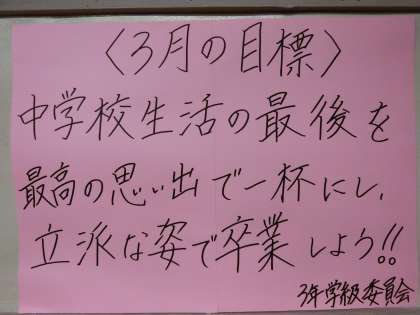 〈3月の目標〉
中学校生活の最後を
最高の思い出で一杯にし、
立派な姿で卒業しよう!!
3年学級委員会